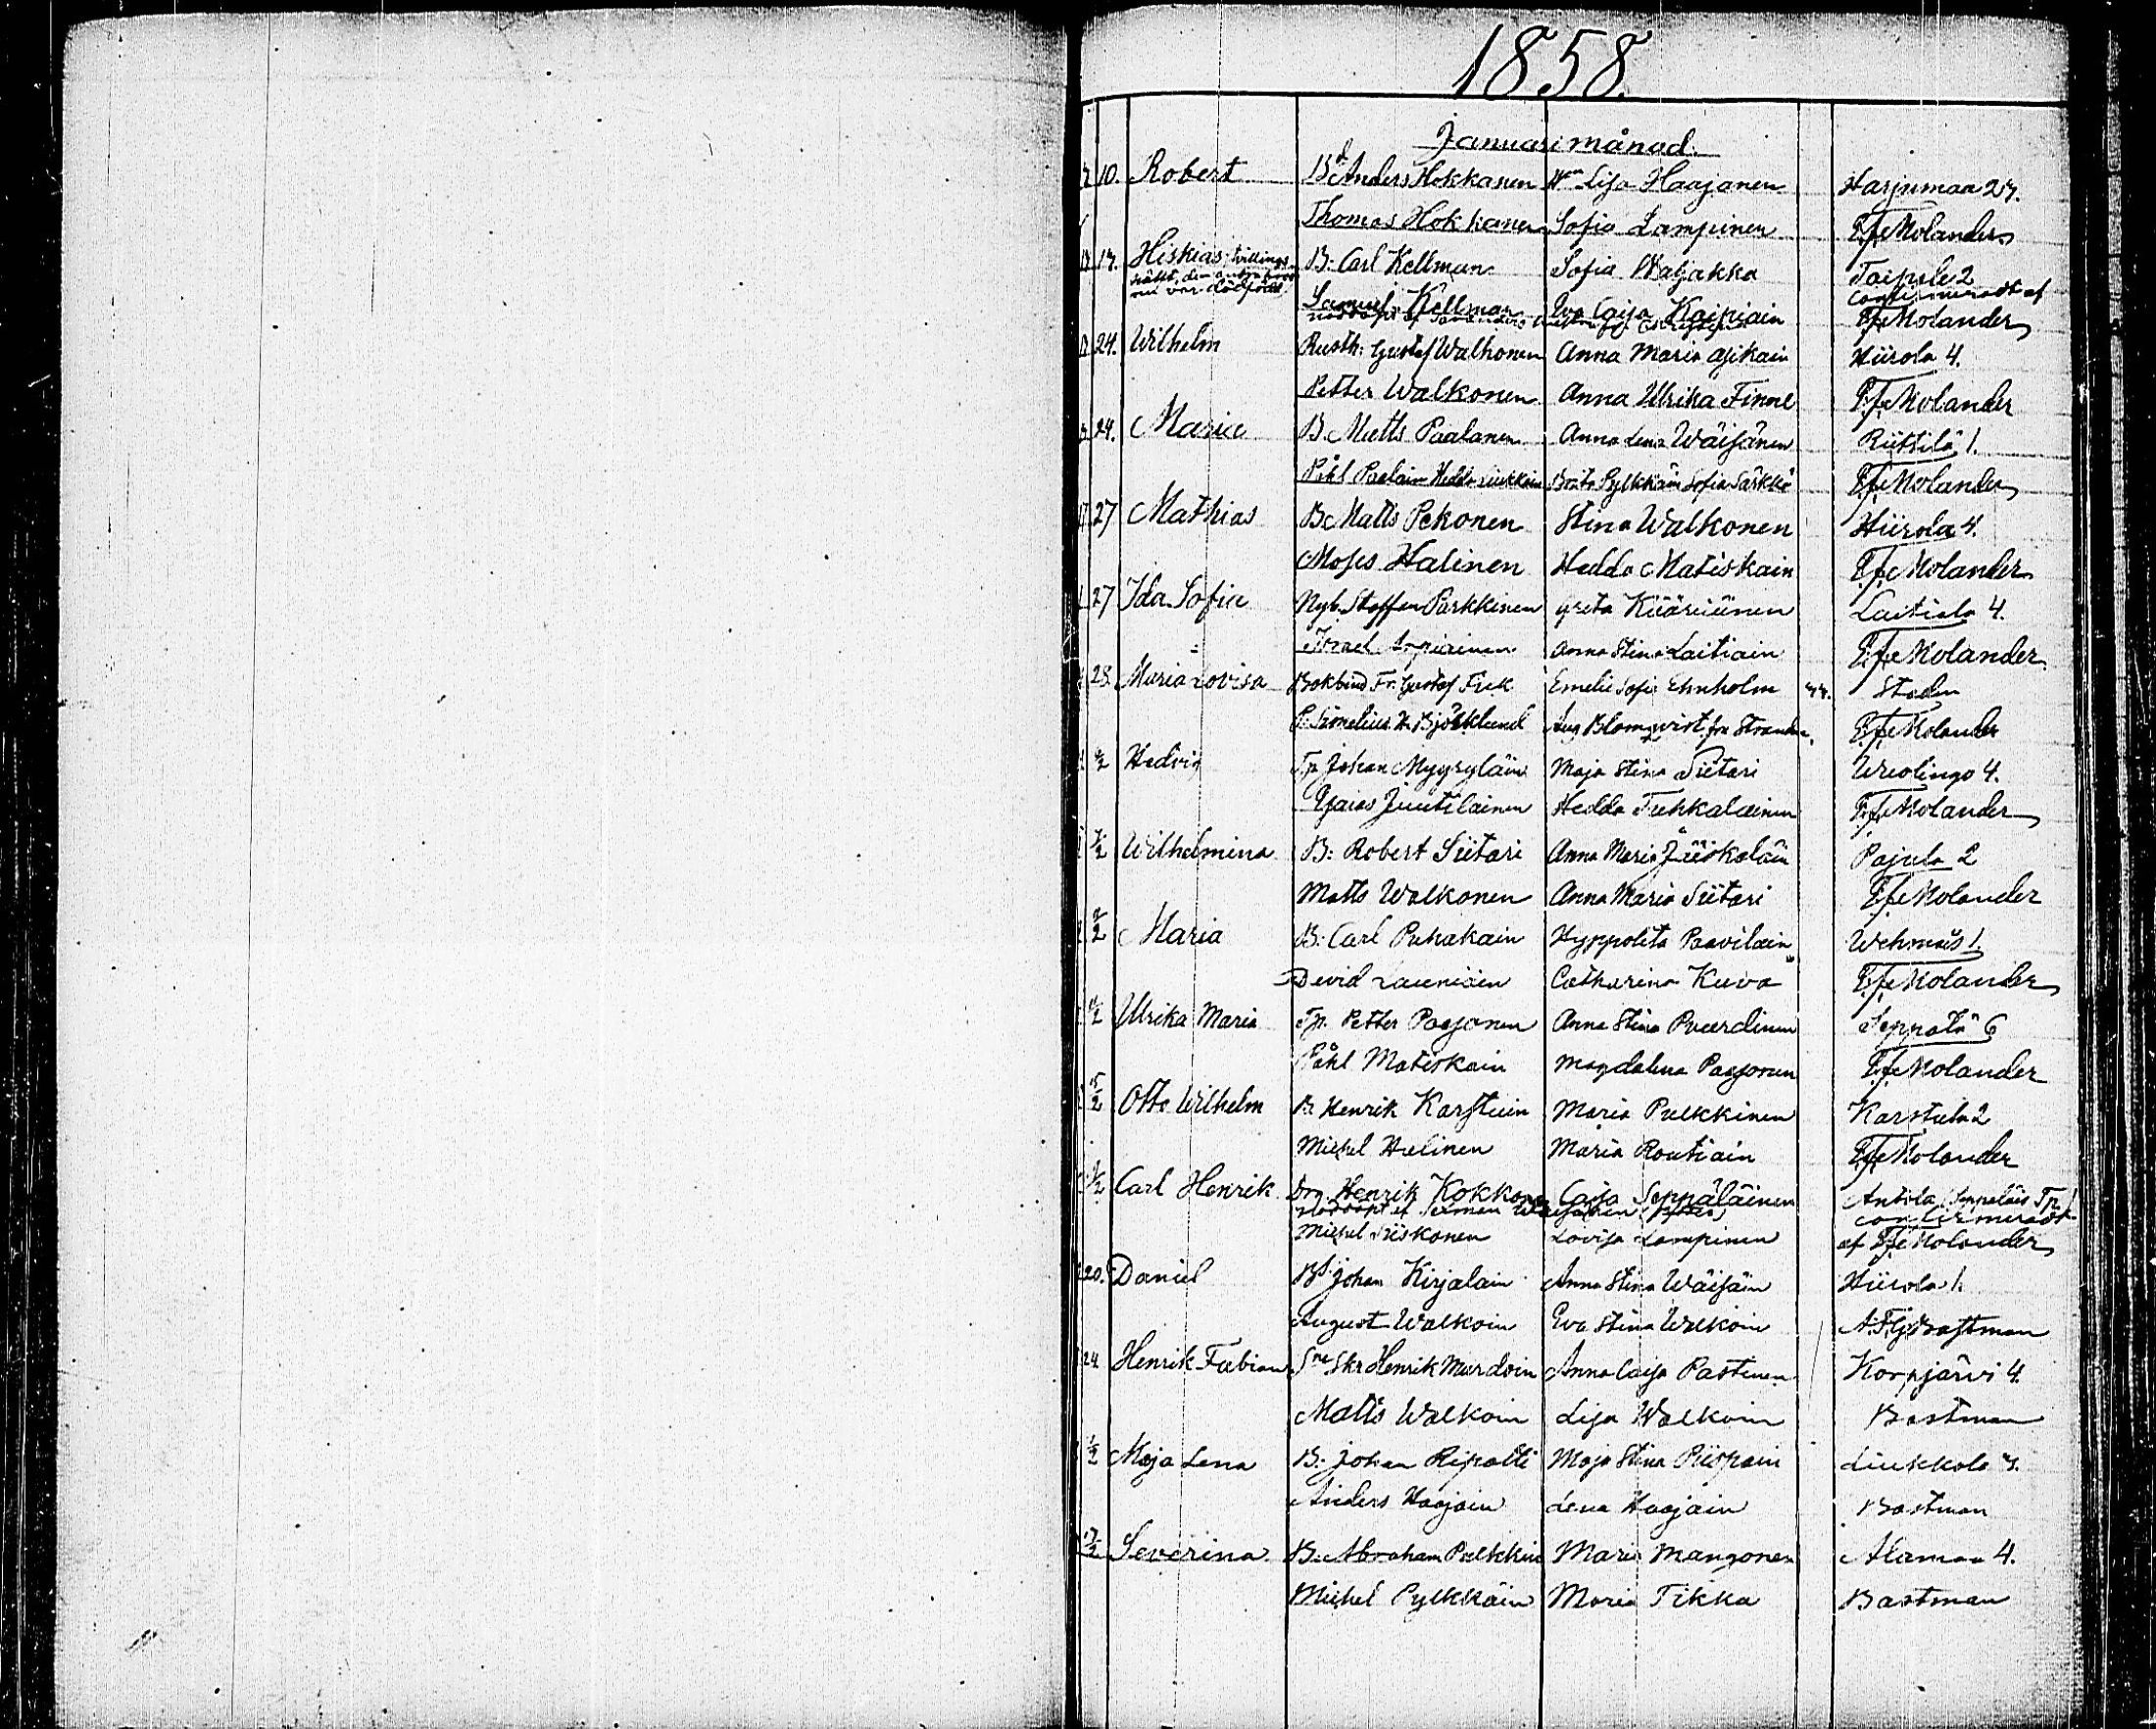 1858.
Januari månad.
10. Robert Bd Anders Hokkanen Hn Lisa Haajanen Harjumaa 24.
Thomas Hokkanen Sofia Lampinen Molander
17. Hiskias, tvillings B: Carl Kellman Sofia Waljakka Taipale 2
var dödfödd confirmeradt af
Samuel Kellman Eva Caisa Kaipiain Molander
nöddöpt af
24. Wilhelm Rusth: Gustaf Walkonen Anna Maria Asikain Hiirola 4.
Petter Walkonen Anna Ulrika Finne Molander
24. Maria B. Matts Paalanen Anna Lena Wäisänen Riittilä 1.
Påhl Paalain Hedda Liukkoin Beata Pylkkäin Sofia Särkkä Molander
27 Mathias B Matts Pekonen Stina Walkonen Hiirola 4.
Moses Halinen Hedda Matiskain Molander
27 Ida Sofia Nyb. Staffan Parkkinen Greta Kääriäinen Laitiala 4.
Israel Anna Stina Laitiain Molander
28. Maria Lovisa Bokbind Fr. Gustaf Fick Emelie Sofie Ehnholm 44. Staden
Simelius Björklund Aug Blomqvist fru Molander
2 Hedvig Tp Johan Myyryläin Maja Stina Siitari Wiiolingo 4.
Esaias Juutilainen Hedda Tuhkalainen Molander
7/2 Wilhelmina B: Robert Siitari Anna Maria Jääskeläin Pajula 2
Matts Walkonen Anna Maria Siitari Molander
2 Maria B: Carl Puhakain Hyppolita Paavilain Wehmais 1.
David Launiain Catharina Kuva Molander
2 Ulrika Maria Tp. Petter Paajanen Anna Stina Puurdinen Seppälä 6
Påhl Matiskain Magdalena Paajonen Molander
15/2 Otto Wilhelm B: Henrik Karstuin Maria Pulkkinen Karstula 2
Michel Halinen Maria Routiain Molander
2 Carl Henrik Dr. Henrik Kokkonen Caisa Seppäläinen Anttola, Seppäläis Tp
nöddöpt af Herman Waisänen confirmeradt
Michel Siiskonen Lovisa Lampinen af Molander
20. Daniel Bs. Johan Kirjalain Anna Stina Wäisäin Hiirola 1.
August Walkoin Eva Stina Walkoin Bastman
24 Henrik Fabian Sne Skr Henrik Murdoin Anna Caisa Pastinen Korpjärvi 4.
Matts Walkoin Lisa Walkoin Bastman
Maja Lena B. Johan Ripatti Maja Stina Piispain Liukkola 4.
Anders Haajain Lena Haajain Bastman
Severina B. Abraham Pulkkin Maria Mangonen Alamaa 4.
Michel Pylkkäin Maria Tikka Bastman